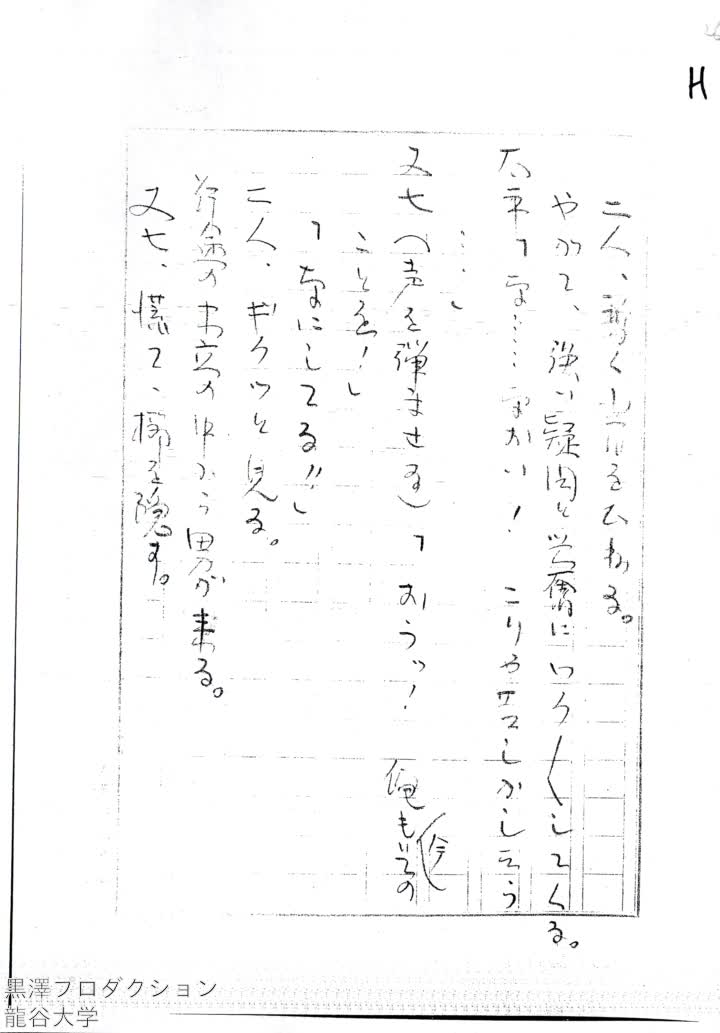 H
二人、暫く山肌を公ねる。
やがて、強い疑問と興奮にわくわくしてくる。
太平「な……なおい! こりやもしかしたら
……」
又七(声を弾ませる)「おうッ! 俺も今その
ことを!」
「なにしてる!!」
二人、ギクッと見る。
斜面の木立の中から男が来る。
又七、慌て、棒を隠す。
黒澤プロダクション
龍谷大学